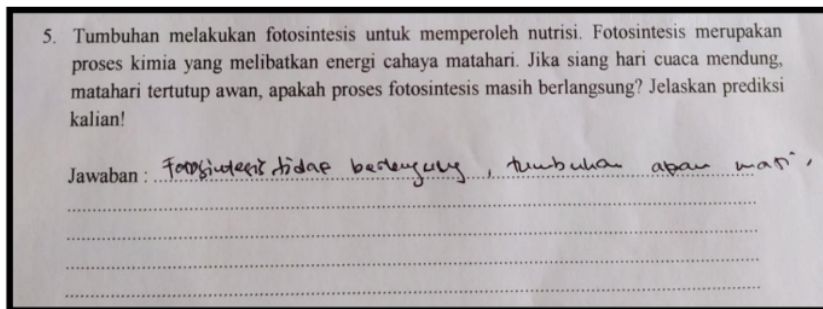 5. Tumbuhan melakukan fotosintesis untuk memperoleh nutrisi. Fotosintesis merupakan
proses kimia yang melibatkan energi cahaya matahari. Jika siang hari cuaca mendung,
matahari tertutup awan, apakah proses fotosintesis masih berlangsung? Jelaskan prediksi
kalian!
Jawaban : Fotosintesis tidak berlangsung, tumbuhan akan mati,